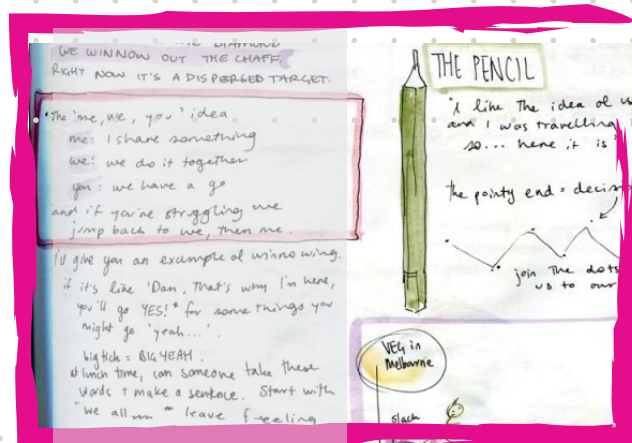 WE WINNOW OUT THE CHAFF
RIGHT NOW IT'S A DISPERSED TARGET.
• The 'me, we, you' idea
me: I share something
we: we do it together
you: we have a go
and if you're struggling we
jump back to we, then me.
I'd give you an example of winnowing.
if it's like 'Dan, that's why I'm here,
you'll go YES!' * for some things you
might go 'yeah...'.
big tick = BIG YEAH.
at lunch time, can someone take these
words & make a sentence. Start with
"we all leave feeling
THE PENCIL
"I like the idea of
and I was travelling
so... here it is"
the pointy end =
join the dots
us to our
VEG in
Melbourne
slack